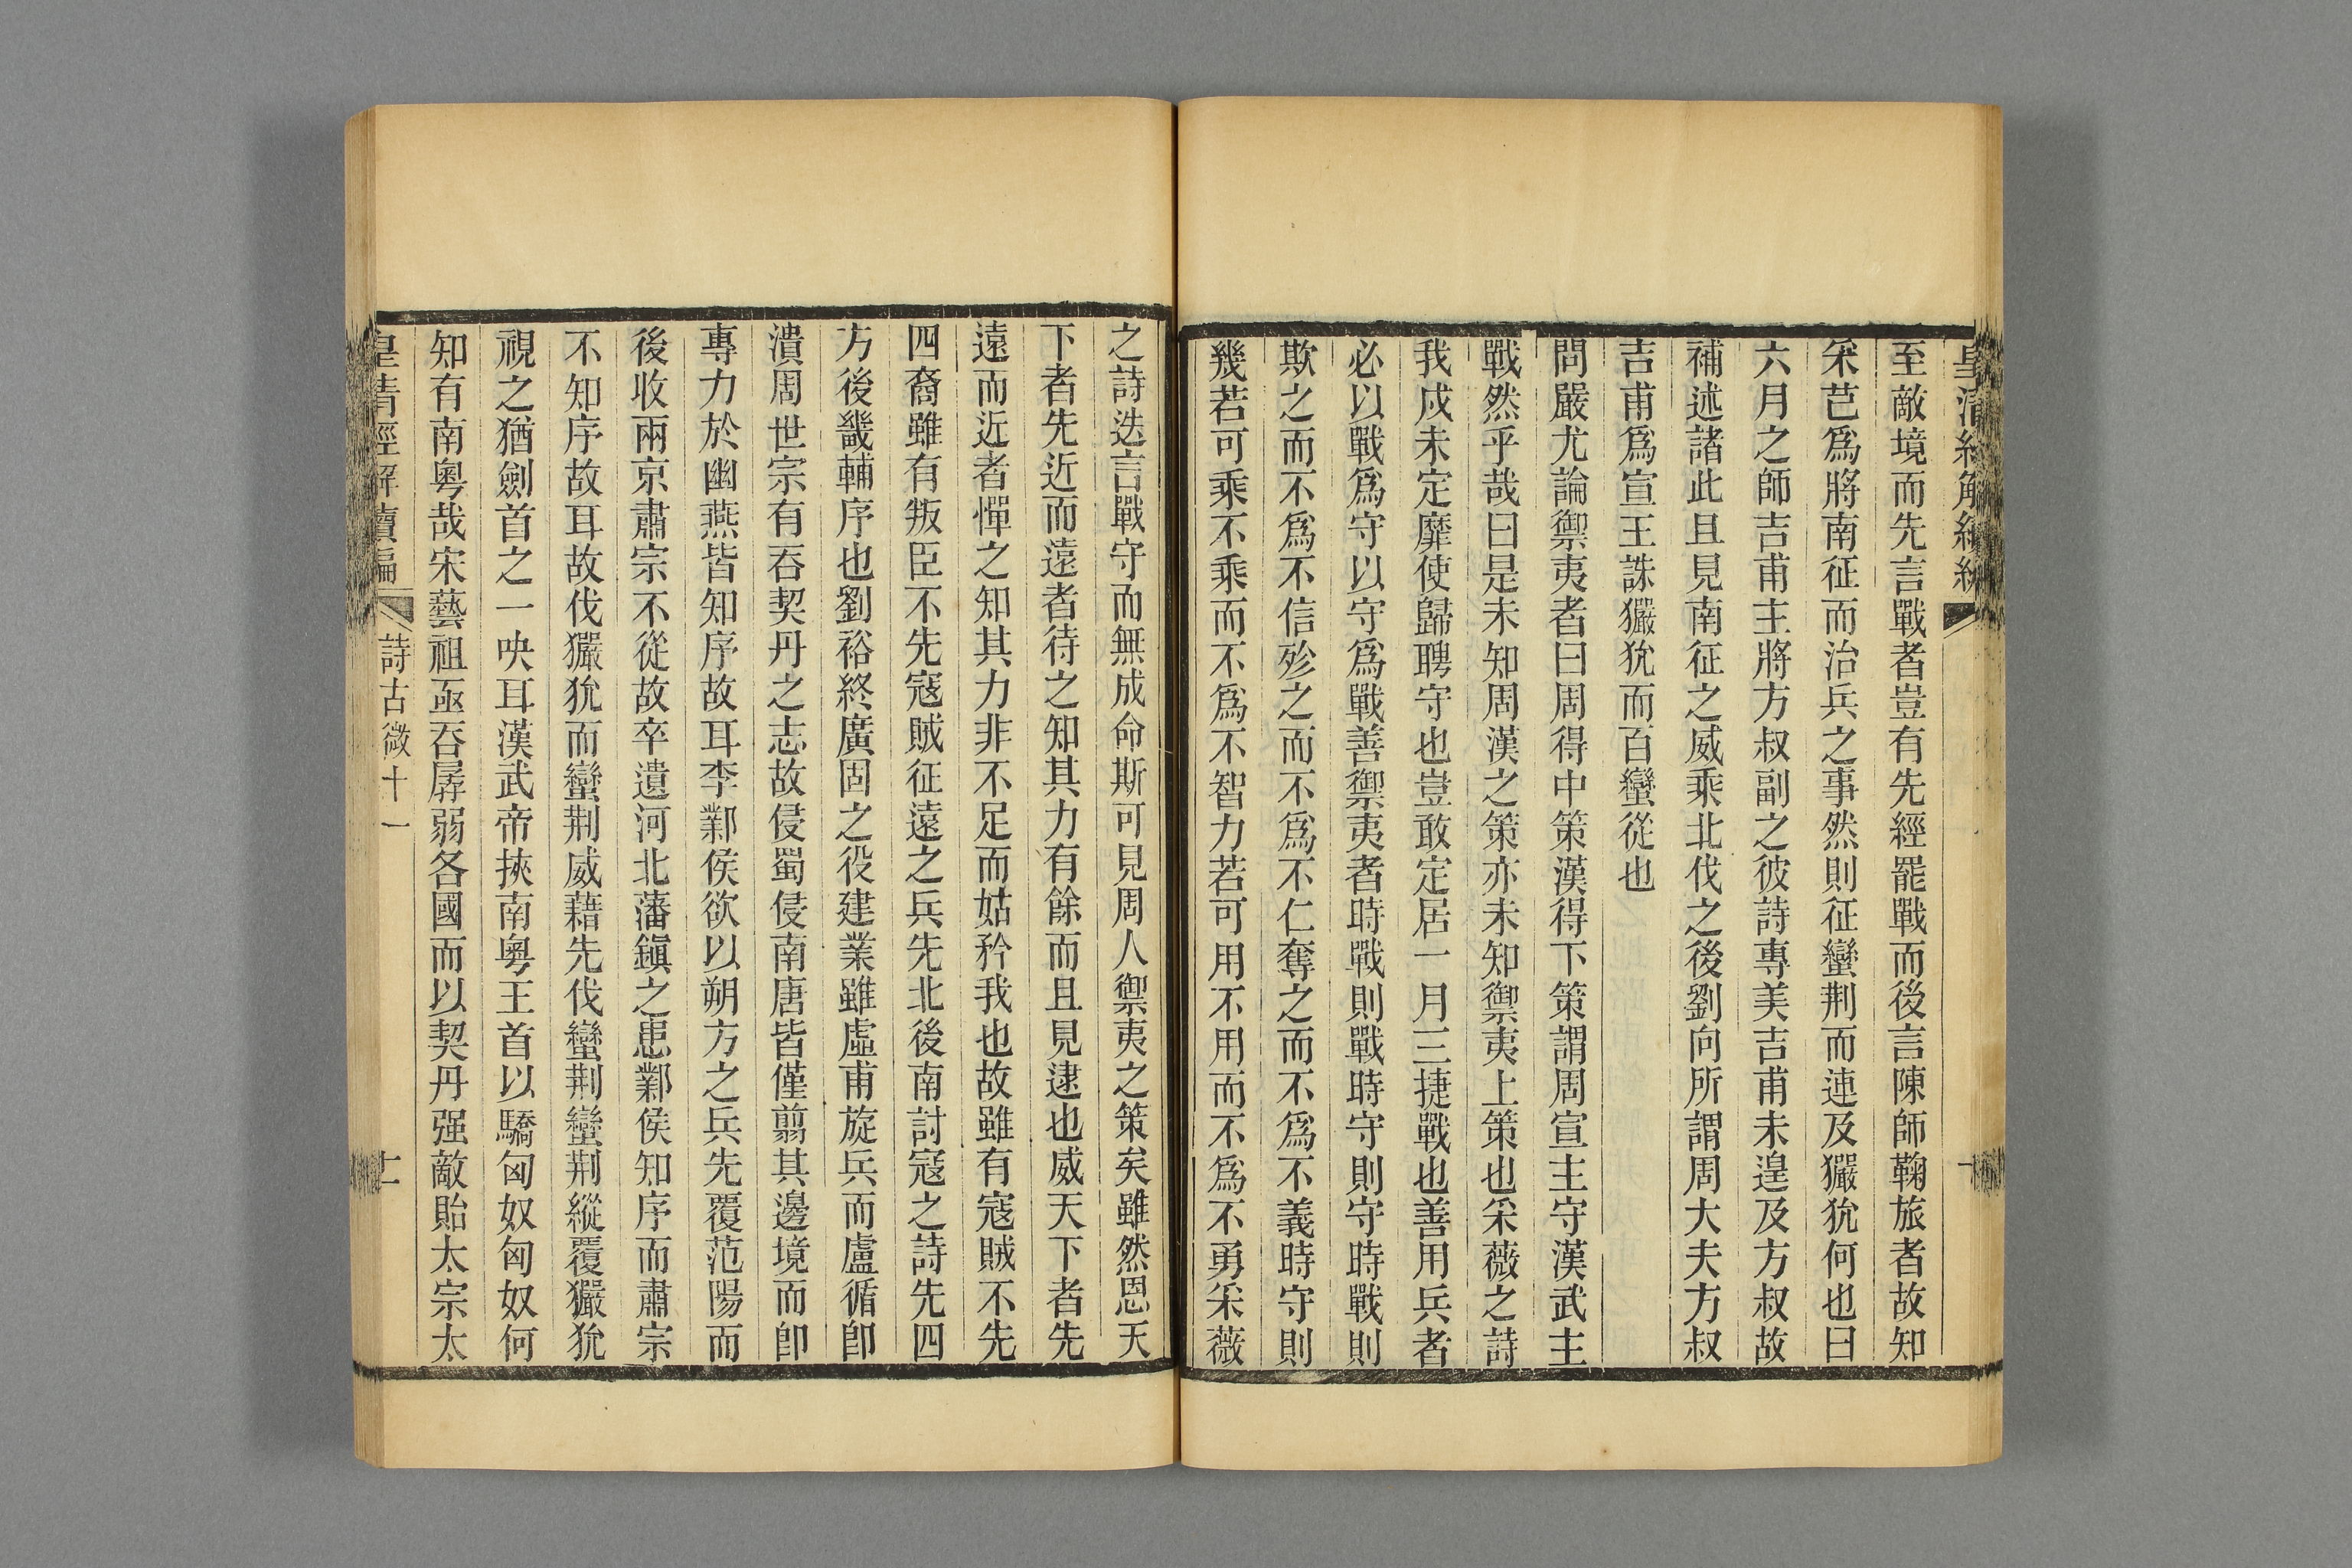 皇清經解續編
至敵境而先言戰者豈有先經罷戰而後言陳師鞠旅者故知
采芑爲將南征而治兵之事然則征蠻荆而連及玁狁何也曰
六月之師吉甫主將方叔副之彼詩專美吉甫未遑及方叔故
補述諸此且見南征之威乘北伐之後劉向所謂周大夫方叔
吉甫爲宣王誅玁狁而百蠻從也
問嚴尤論禦夷者曰周得中策漢得下策謂周宣主守漢武主
戰然乎哉曰是未知周漢之策亦未知禦夷上策也采薇之詩
我戍未定靡使歸聘守也豈敢定居一月三捷戰也善用兵者
必以戰爲守以守爲戰善禦夷者時戰則戰時守則守時戰則
欺之而不爲不信殄之而不爲不仁奪之而不爲不義時守則
幾若可乘不乘而不爲不智力若可用不用而不爲不勇采薇
之詩迭言戰守而無成命斯可見周人禦夷之策矣雖然恩天
下者先近而遠者待之知其力有餘而且見逮也威天下者先
遠而近者憚之知其力非不足而姑矜我也故雖有寇賊不先
四裔雖有叛臣不先寇賊征遠之兵先北後南討寇之詩先四
方後畿輔序也劉裕終廣固之役建業雖虛甫旋兵而盧循卽
潰周世宗有吞契丹之志故侵蜀侵南唐皆僅翦其邊境而卽
專力於幽燕皆知序故耳李鄴侯欲以朔方之兵先覆范陽而
後收兩京肅宗不從故卒遺河北藩鎮之患鄴侯知序而肅宗
不知序故耳故伐玁狁而蠻荆威藉先伐蠻荆蠻荆縱覆玁狁
視之猶劍首之一吷耳漢武帝挾南粵王首以驕匈奴匈奴何
知有南粵哉宋藝祖亟吞孱弱各國而以契丹强敵貽太宗太
皇清經解續編
詩古微十一
十一